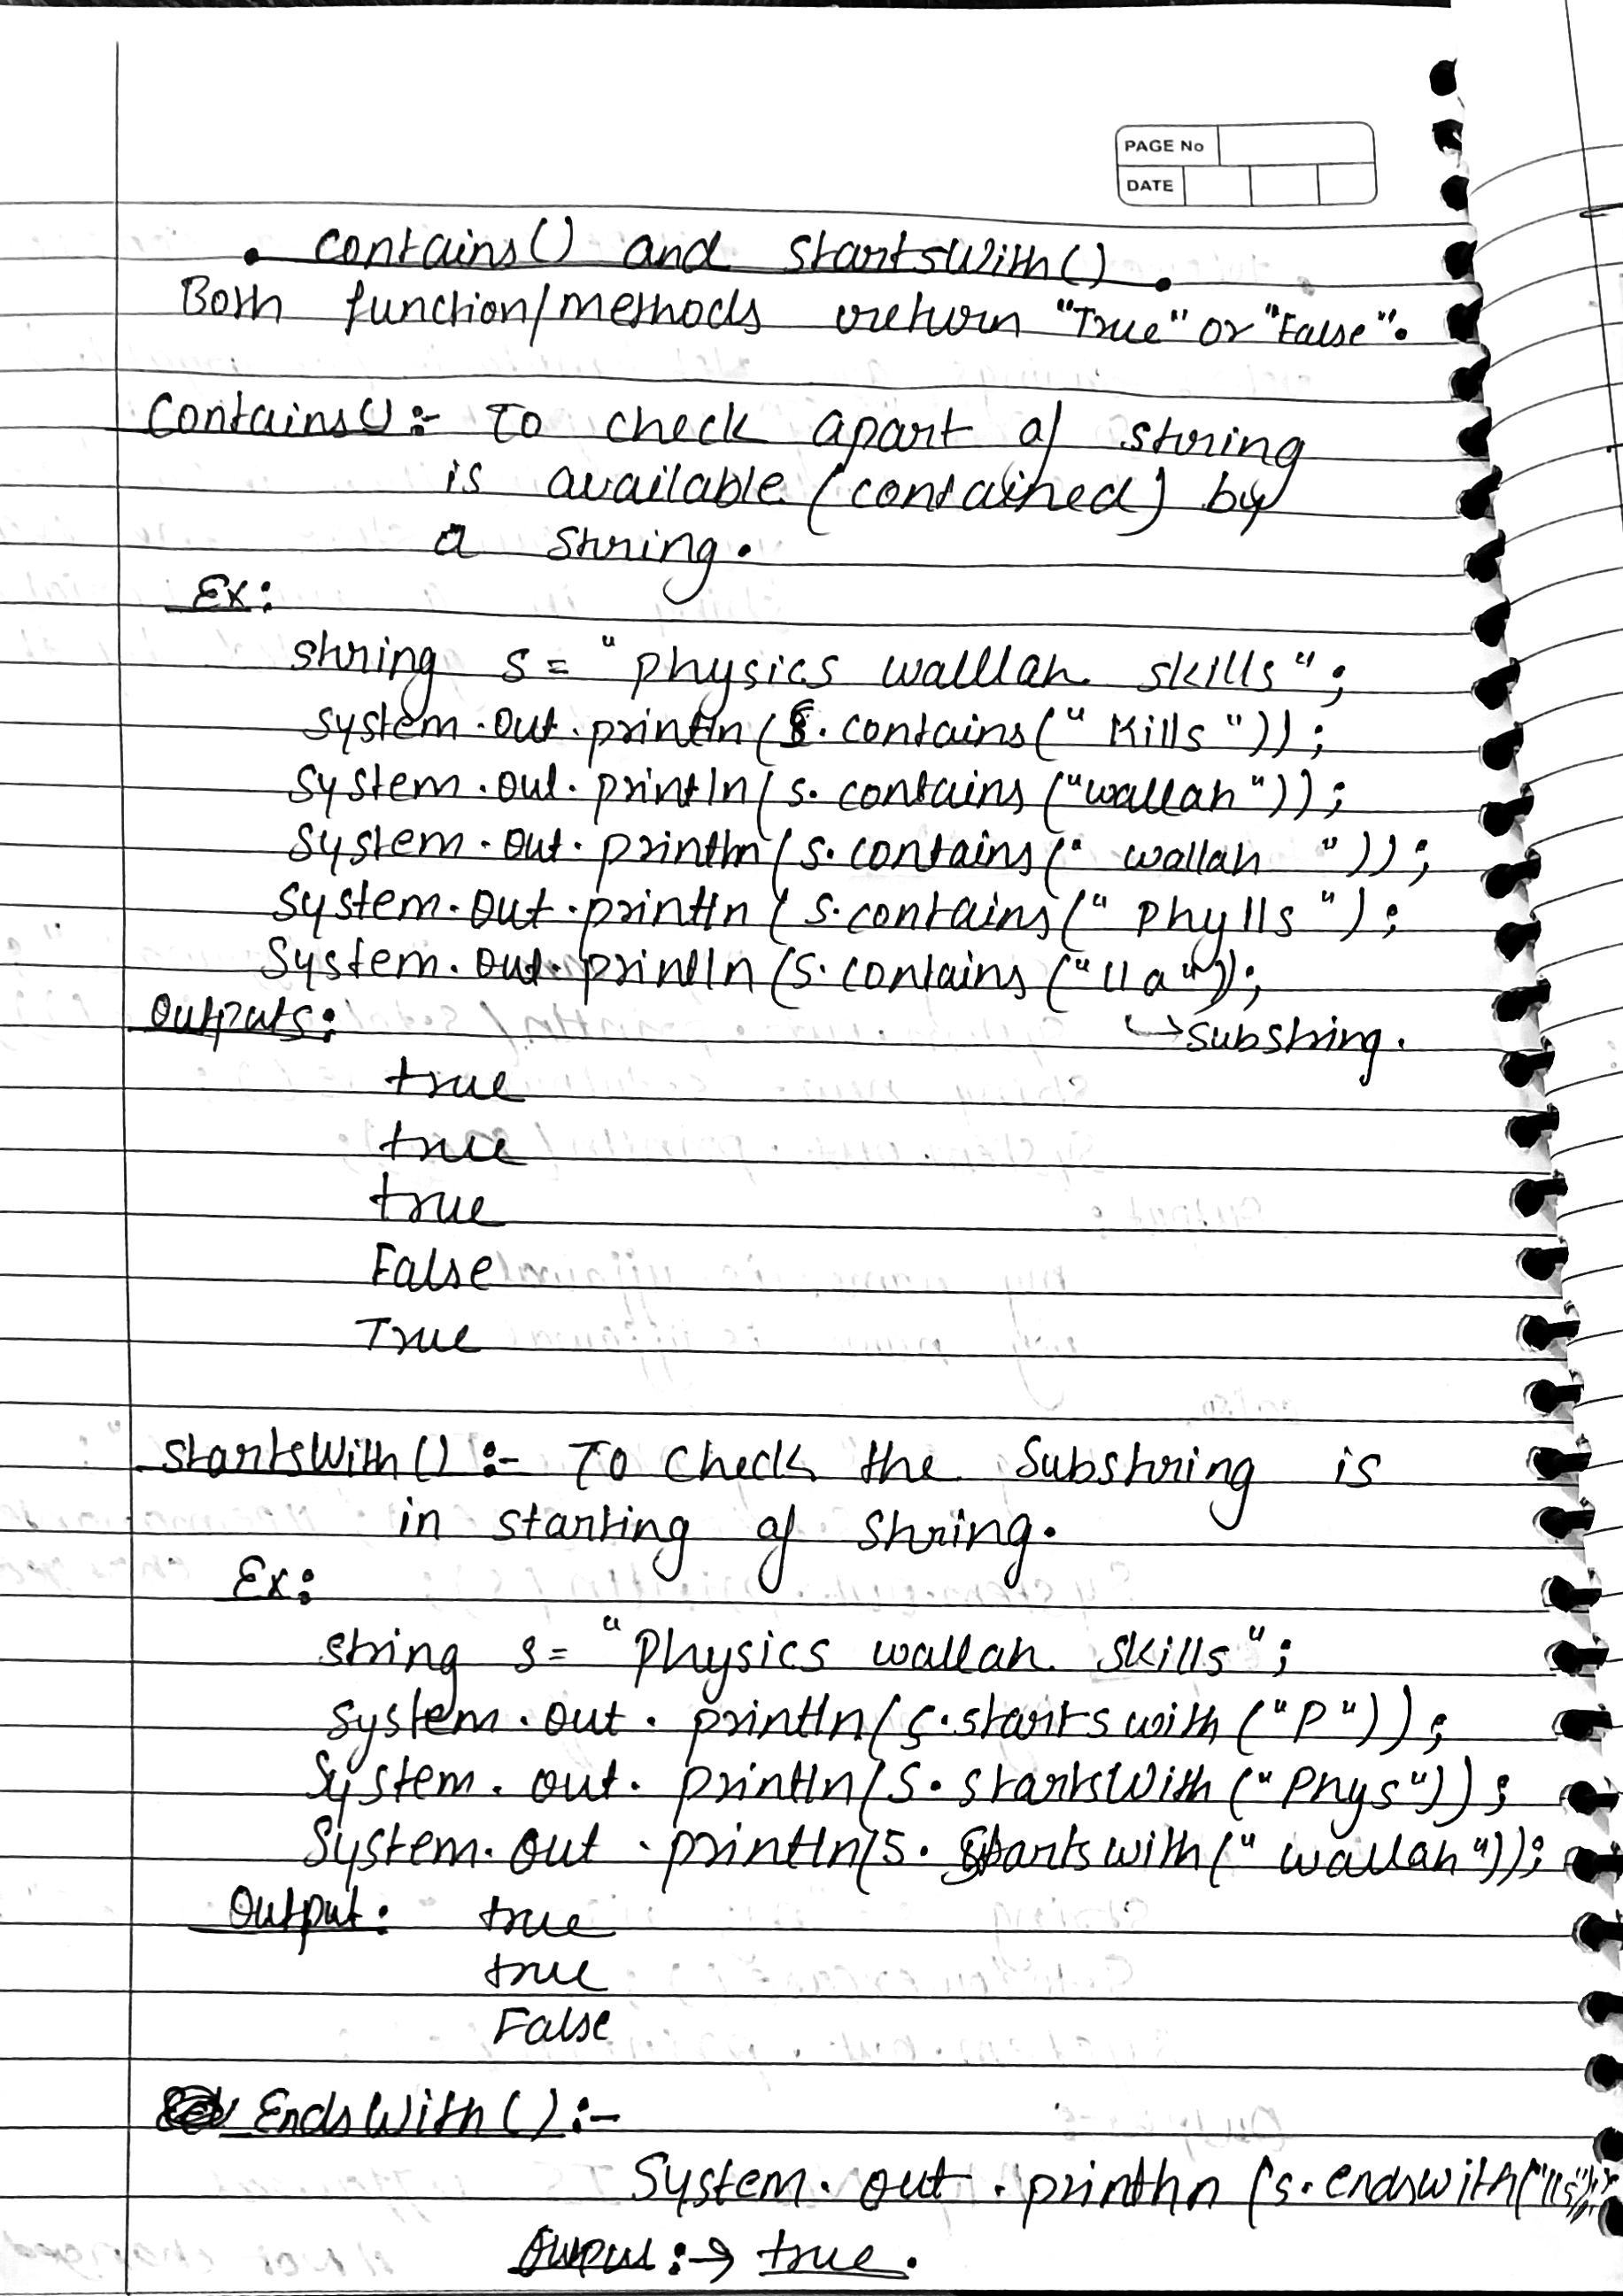 PAGE No
DATE
• contains() and startsWith() •
Both function/methods return "True" or "False".
Contains():- To check apart of string
is available (contained) by
a string.
Ex:
string s = "physics walllah skills";
system.out.println(s.contains("kills"));
system.out.println(s.contains("wallah"));
system.out.println(s.contains(" wallah "));
system.out.println(s.contains("phylls");
System.out.println(s.contains("lla");
Outputs:
↳substring.
true
true
true
False
True
startsWith():- To check the substring is
in starting of string.
Ex:
string s = "Physics wallah skills";
system.out.println(s.starts with("P"));
System.out.println(s.startsWith("Phys"));
System.out.println(s.startswith("wallah"));
Output: true
true
False
EndsWith():-
System.out.println(s.endswith("lls"));
Output:→ true.